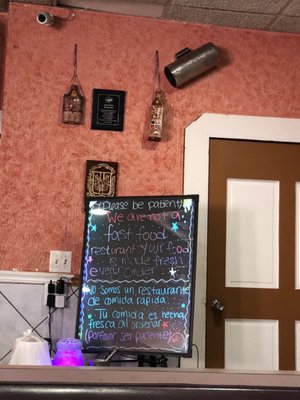 (Please be patient)
We are not a
fast food
resturant your food
is made fresh
every order
No somos un restaurante
de comida rapida.
Tu comida es hecha
fresca al ordenar
(porfavor sea paciente)